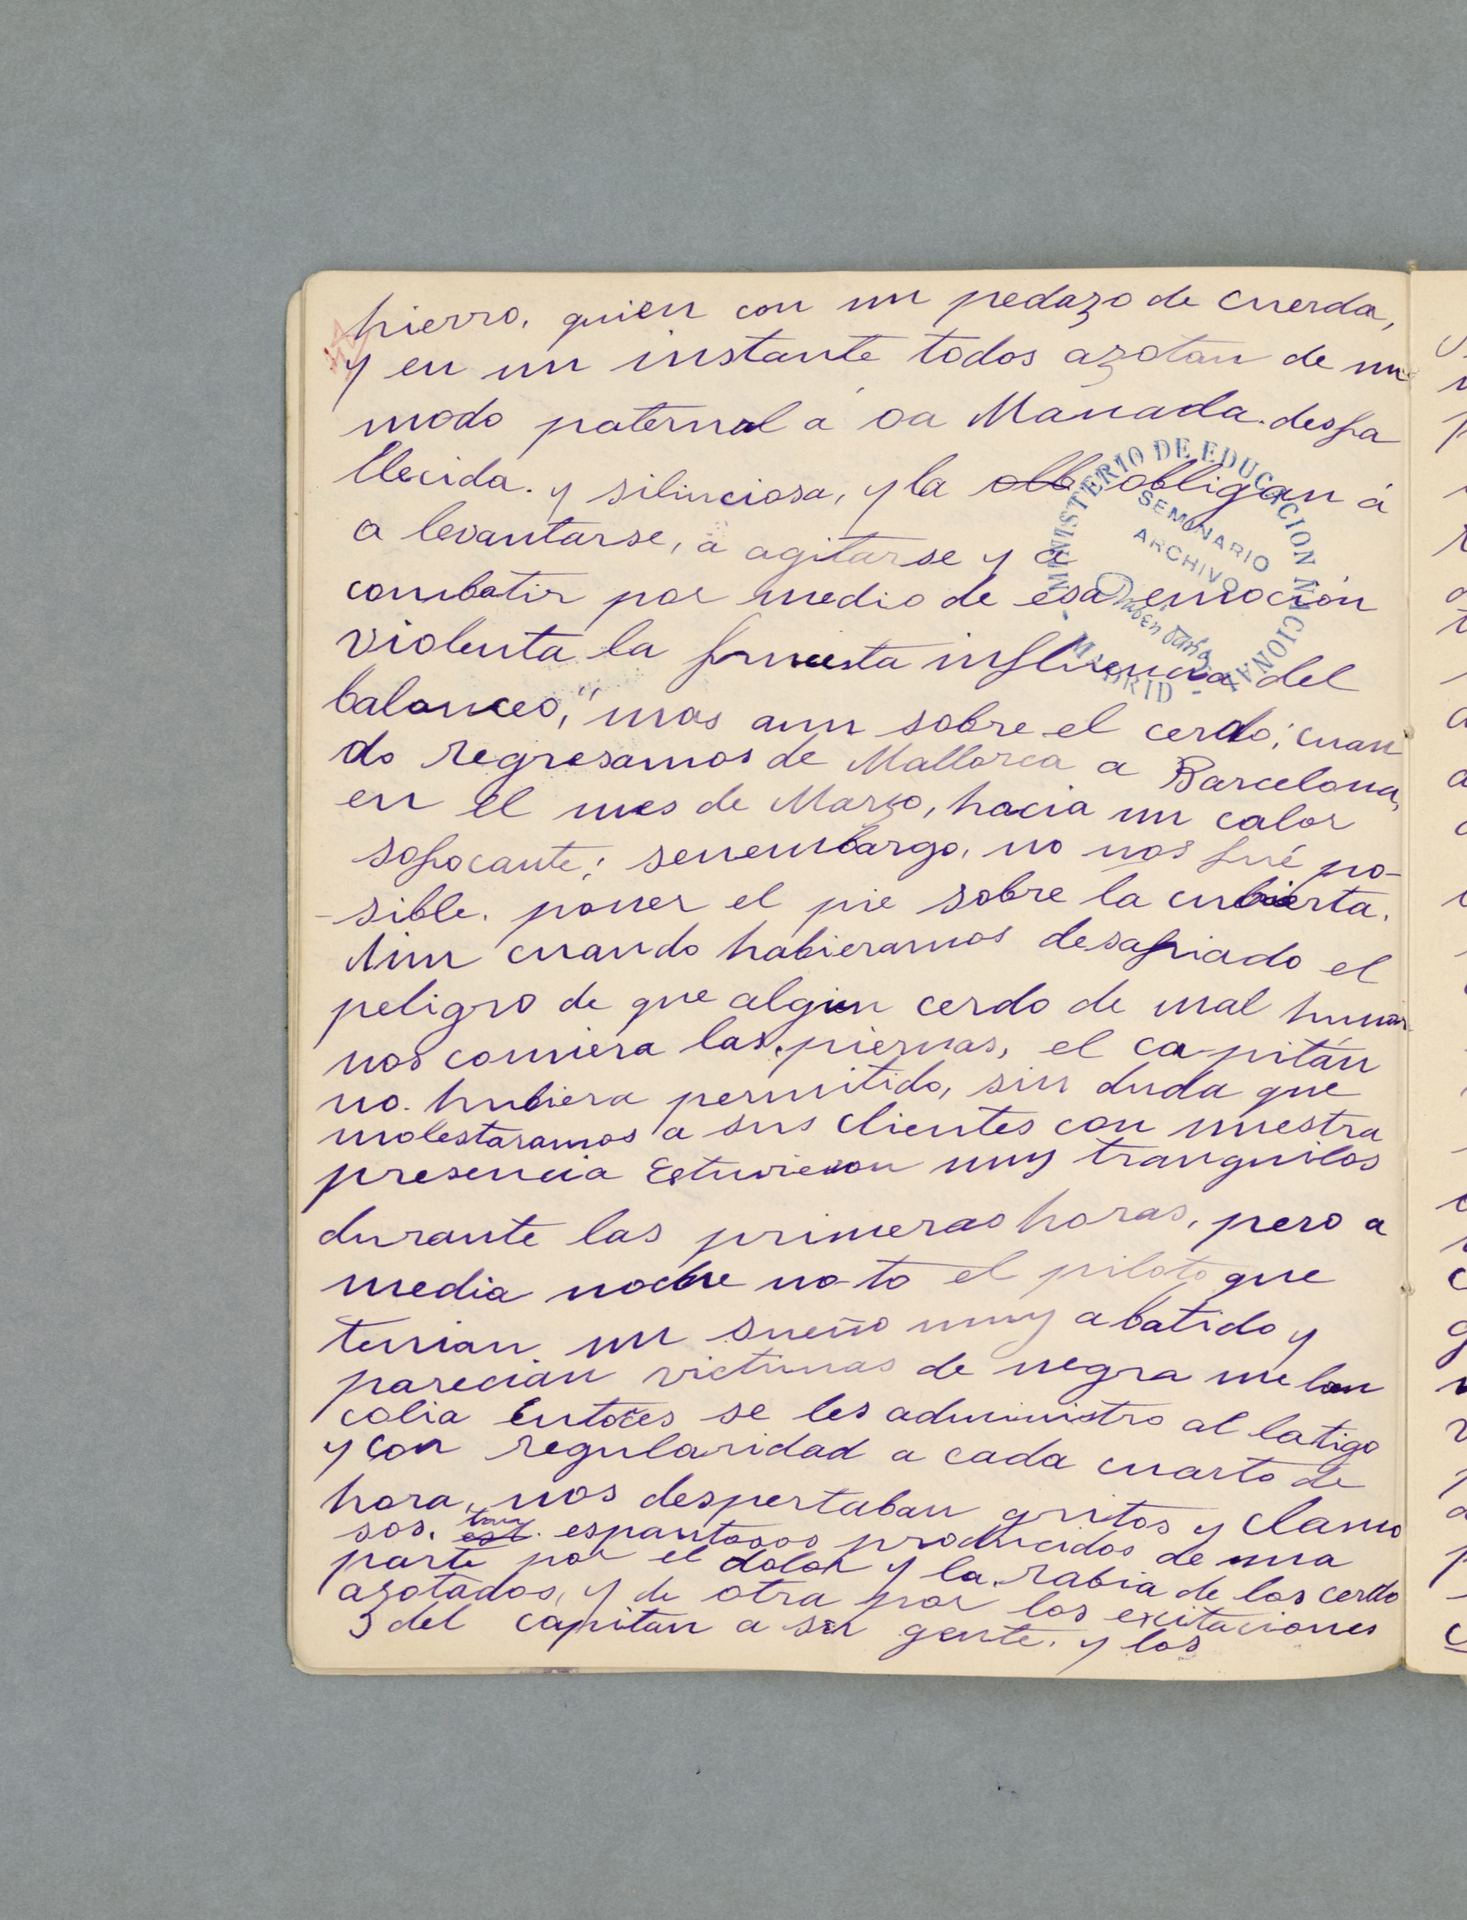 hierro, quien con un pedazo de cuerda,
y en un instante todos azotan de un
modo paternal á oa Manada. desfa
llecida. y silinciosa, y la obb obligan á
a levantarse, á agitarse y á
combatir por medio de esa emoción
violenta la funesta influencia del
balanceo," mas aun sobre el cerdo; cuan
do regresamos de Mallorca a Barcelona,
en el mes de Marzo, hacia un calor
sofocante; senembargo, no nos fué po-
-sible. poner el pie sobre la cubierta.
Aun cuando habieramos desafiado el
peligro de que algun cerdo de mal humor
nos comiera las piernas, el capitán
no. hubiera permitido, sin duda que
molestaramos a sus clientes con nuestra
presencia Estuvieron muy tranquilos
durante las primeras horas, pero a
media noche no-to el piloto que
tenian un sueño muy abatido y
parecián victimas de negra melan
colia Entoces se les administro al latigo
y con regularidad a cada cuarto de
hora, nos despertaban gritos y clamo
sos. est. tan espantosos producidos de una
parte por el dolor y la rabia de los cerdo
azotados, y de otra por los exitaciones
s del capitan a su gente. y los
MINISTERIO DE EDUCACION NACIONAL
- MADRID -
SEMINARIO
ARCHIVO
Rubén Darío